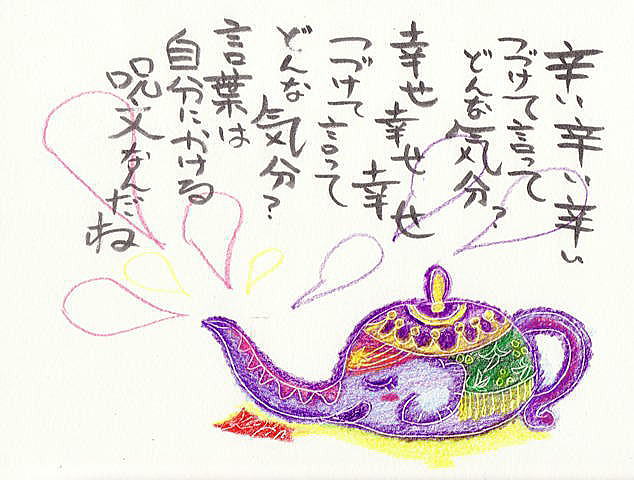 辛い辛い辛い
つづけて言って
どんな気分?
幸せ幸せ幸せ
つづけて言って
どんな気分?
言葉は
自分にかける
呪文なんだね